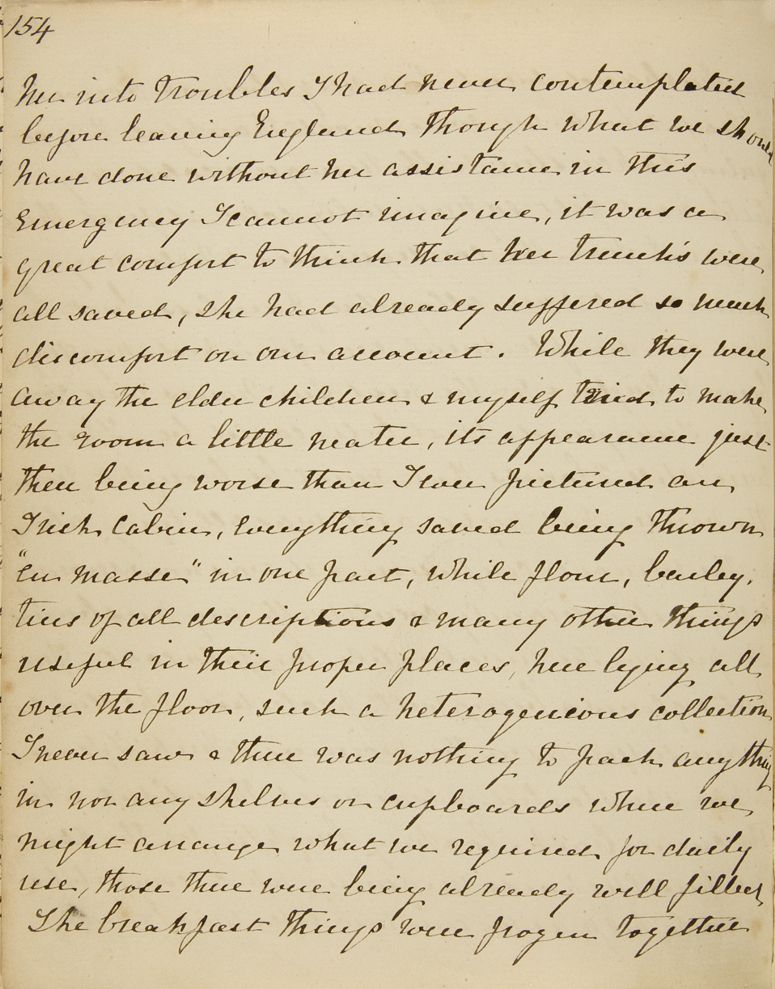 154
her into troubles I had never contemplated
before leaving England though what we should
have done without her assistance in this
Emergency I cannot imagine, it was a
great comfort to think that her trunks were
all saved, she had already suffered so much
discomfort on our account. While they were
away the elder children & myself tried to make
the room a little neater, its appearance just
then being worse than I ever pictured an
Irish Cabin, everything saved being thrown
"en masse" in one part, while flour, barley,
tins of all descriptions & many other things
useful in their proper places, here lying all
over the floor, such a heterogenious collection
I never saw & there was nothing to pack anything
in nor any shelves or cupboards where we
might arrange what we required for daily
use, those there were being already well filled
The breakfast things were frozen together